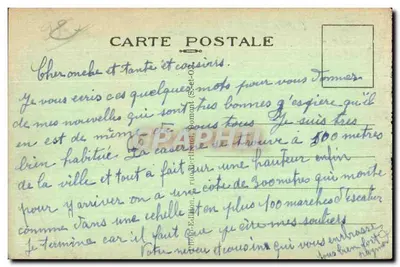 CARTE POSTALE
Cher oncle et tante et cousins.
Je vous ecris ces quelques mots pour vous donner
de mes nouvelles qui sont très bonnes j'espère qu'il
en est de même vous tous Je suis très
bien habitué. La caserne se trouve à 500 metres
de la ville et tout à fait sur une hauteur enfin
pour y arriver on a une cote de 300 metres qui monte
comme dans une echelle et en plus 100 marches d'escalier
Je termine car il faut que je cire mes souliers
Votre neveu et cousins qui vous embrasse
tous bien fort